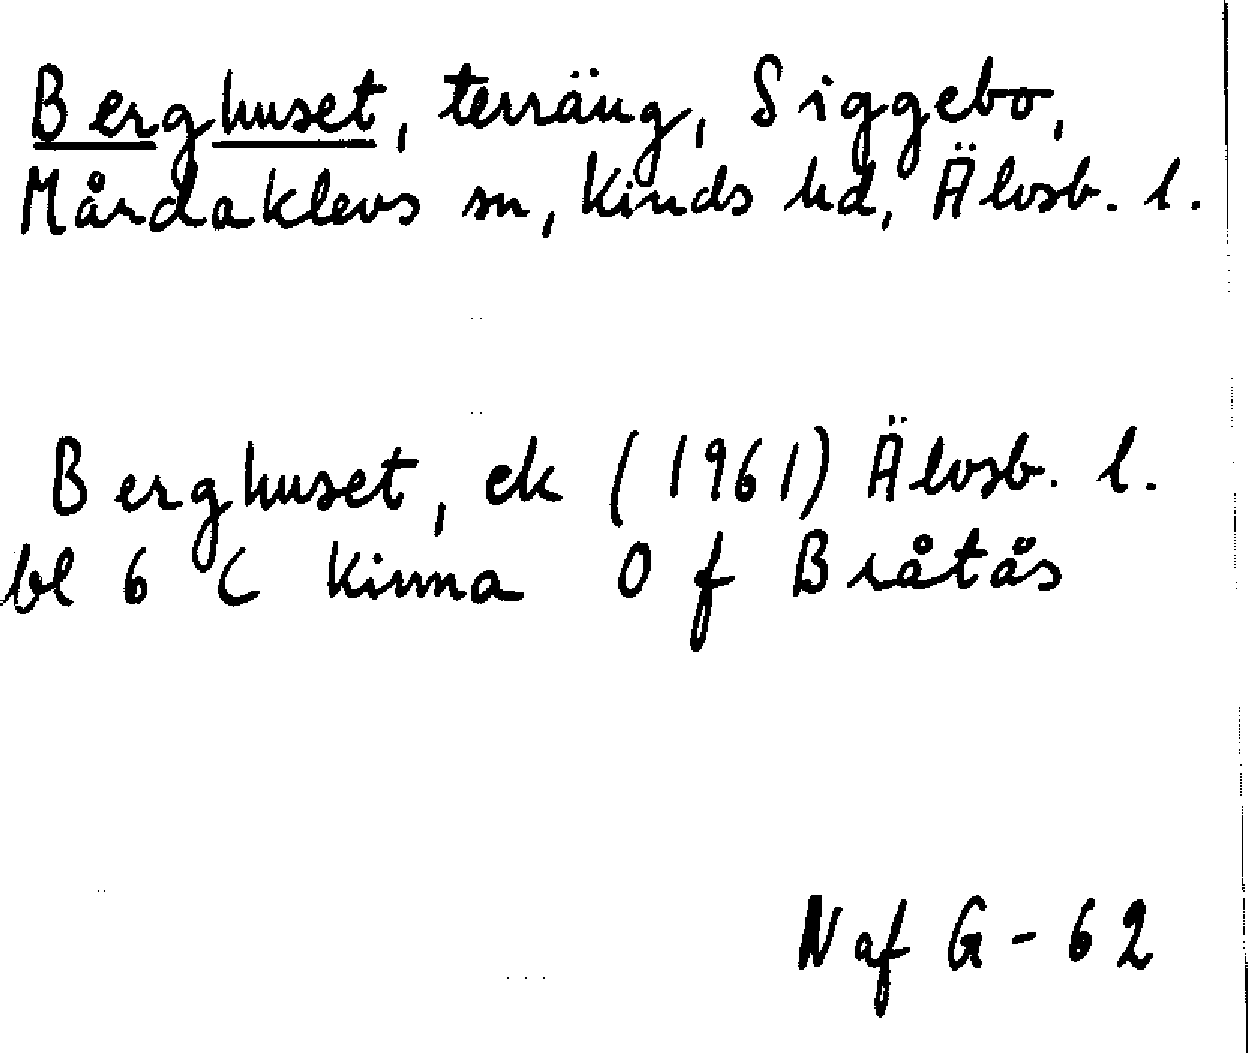 Berghuset, terräng, Siggebo,
Mårdaklevs sn, Kinds hd, Älvsb. l.
Berghuset, ek (1961) Älvsb. l.
bl 6 C Kinna O f Bråtås
Naf G-62